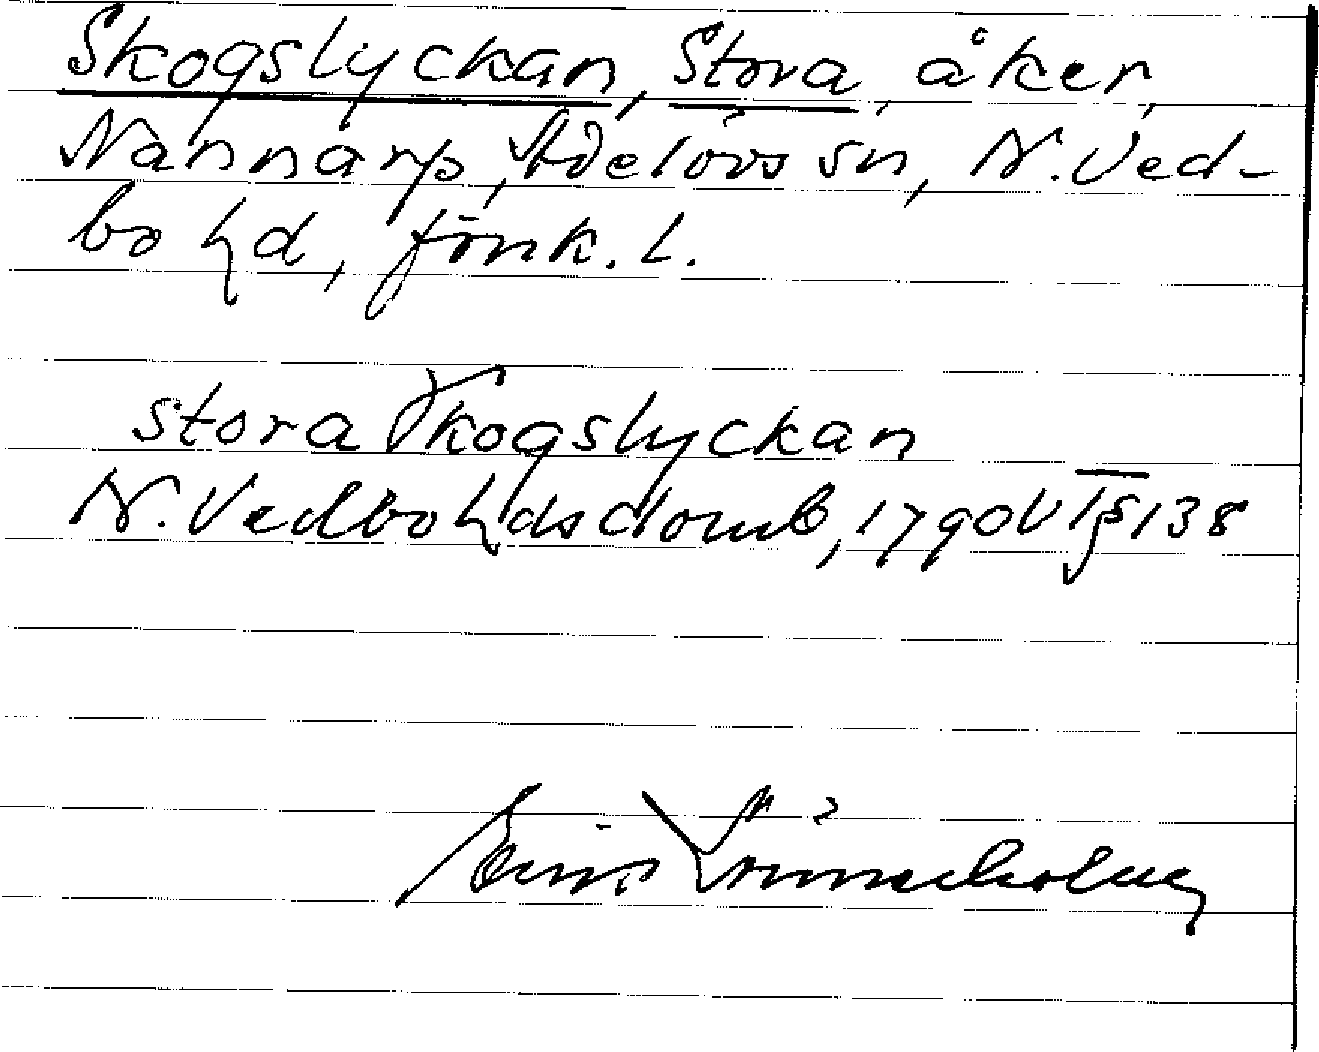 Skogslyckan, Stora, åker,
Nannarp, Adelövs sn, N. Ved-
bo hd, Jönk. l.
stora Skogslyckan
N. Vedbo hds domb, 1790 V § 138